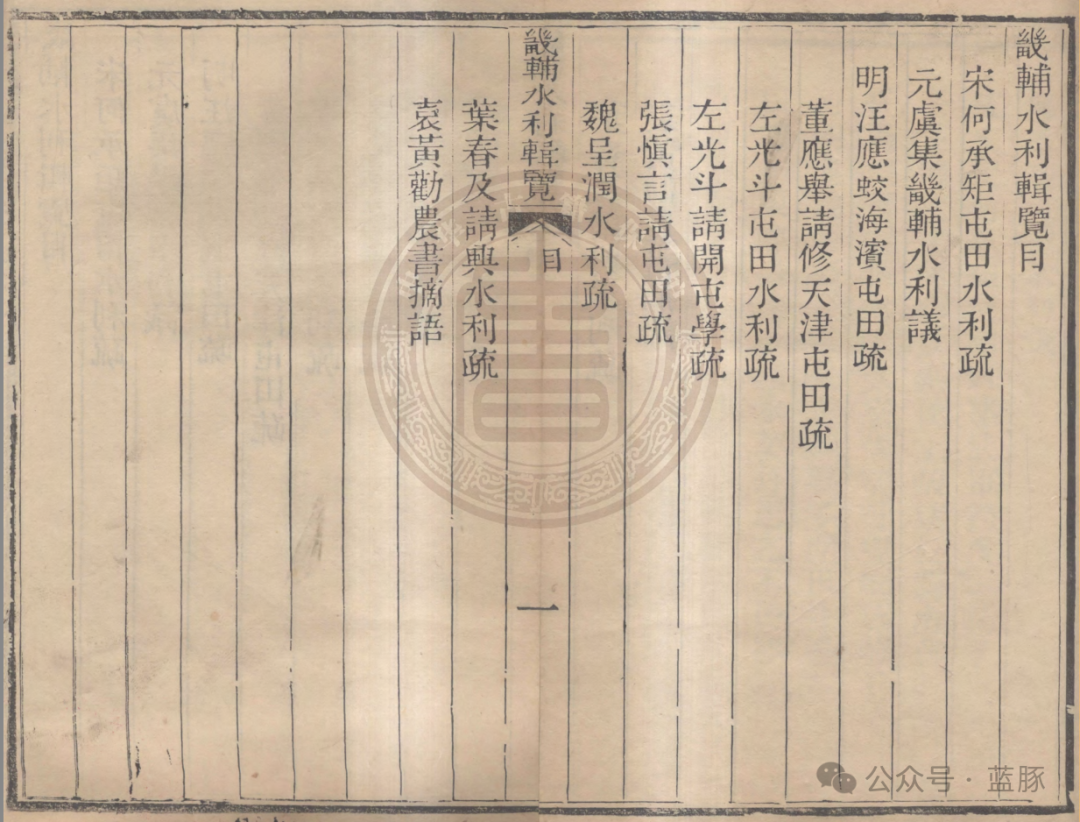 畿輔水利輯覽目
宋何承矩屯田水利疏
元虞集畿輔水利議
明汪應蛟海濱屯田疏
董應舉請修天津屯田疏
左光斗屯田水利疏
左光斗請開屯學疏
張慎言請屯田疏
魏呈潤水利疏
畿輔水利輯覽 目 一
葉春及請興水利疏
袁黃勸農書摘語
公众号·蓝豚